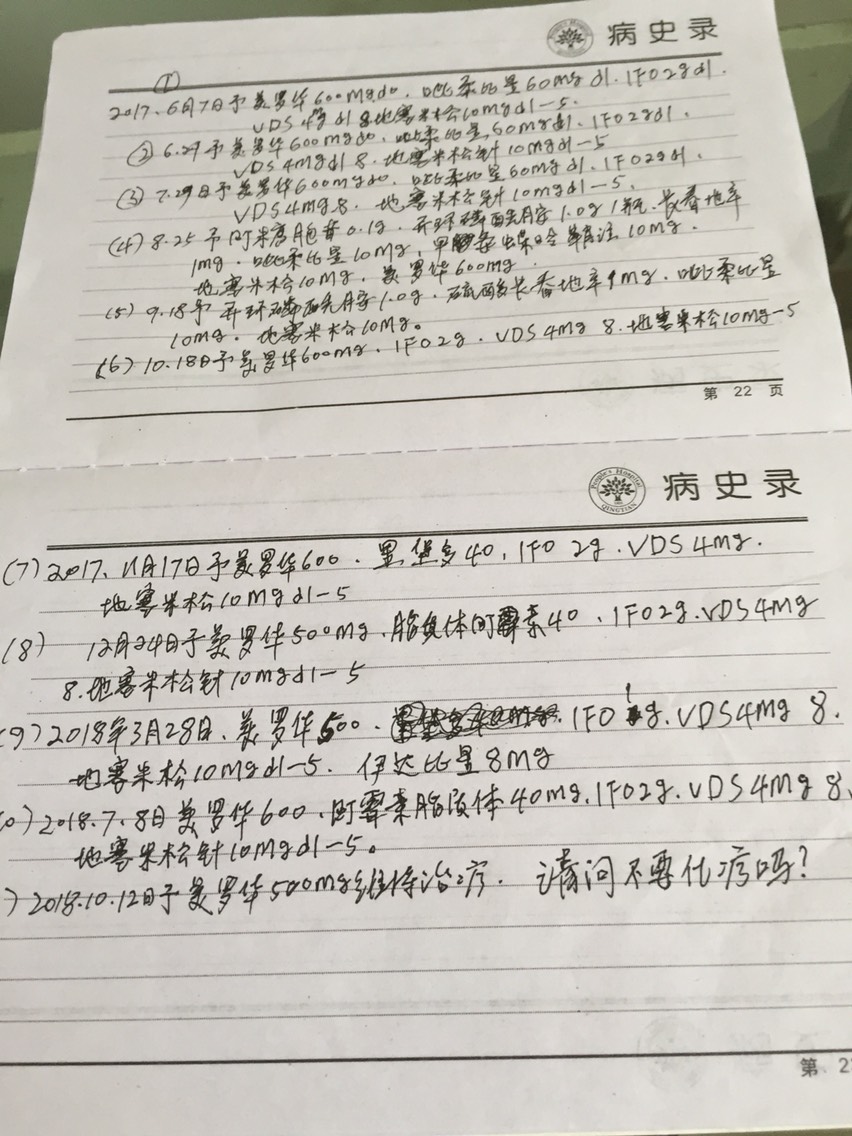 病史录
①
2017.6月7日予美罗华600mgd0.吡柔比星60mg d1.IFO2gd1.
VDS 4mg d1 8.地塞米松10mgd1-5.
② 6.29予美罗华600mgd0.吡柔比星60mgd1.IFO2gd1.
VDS 4mgd1 8.地塞米松针10mgd1-5
(3) 7.29日予美罗华600mgd0.吡柔比星60mgd1.IFO2gd1.
VDS4mg8.地塞米松针10mgd1-5.
(4) 8.25予阿糖胞苷0.1g.异环磷酰胺1.0g1瓶.长春地辛
1mg.吡柔比星10mg.甲氨蝶呤 10mg.
地塞米松10mg.美罗华600mg.
(5) 9.18予异环磷酰胺1.0g.硫酸长春地辛4mg.吡柔比星
10mg.地塞米松10mg。
(6) 10.18日予美罗华600mg.IFO2g.VDS4mg 8.地塞米松10mg-5
第 22 页
People's Hospital
QINGTIAN
病史录
(7) 2017.11月17日予美罗华600.里堡多40.IFO 2g.VDS4mg.
地塞米松10mgd1-5
(8) 12月24日予美罗华500mg.脂质体阿霉素40.IFO2g.VDS4mg
8.地塞米松针10mgd1-5
(9) 2018年3月28日.美罗华500. IFO 1g.VDS4mg 8.
地塞米松10mgd1-5.伊达比星8mg
0) 2018.7.8日美罗华600.阿霉素脂质体40mg.IFO2g.VDS4mg 8.
地塞米松针10mgd1-5。
) 2018.10.12日予美罗华500mg维持治疗.请问不要化疗吗?
第 2